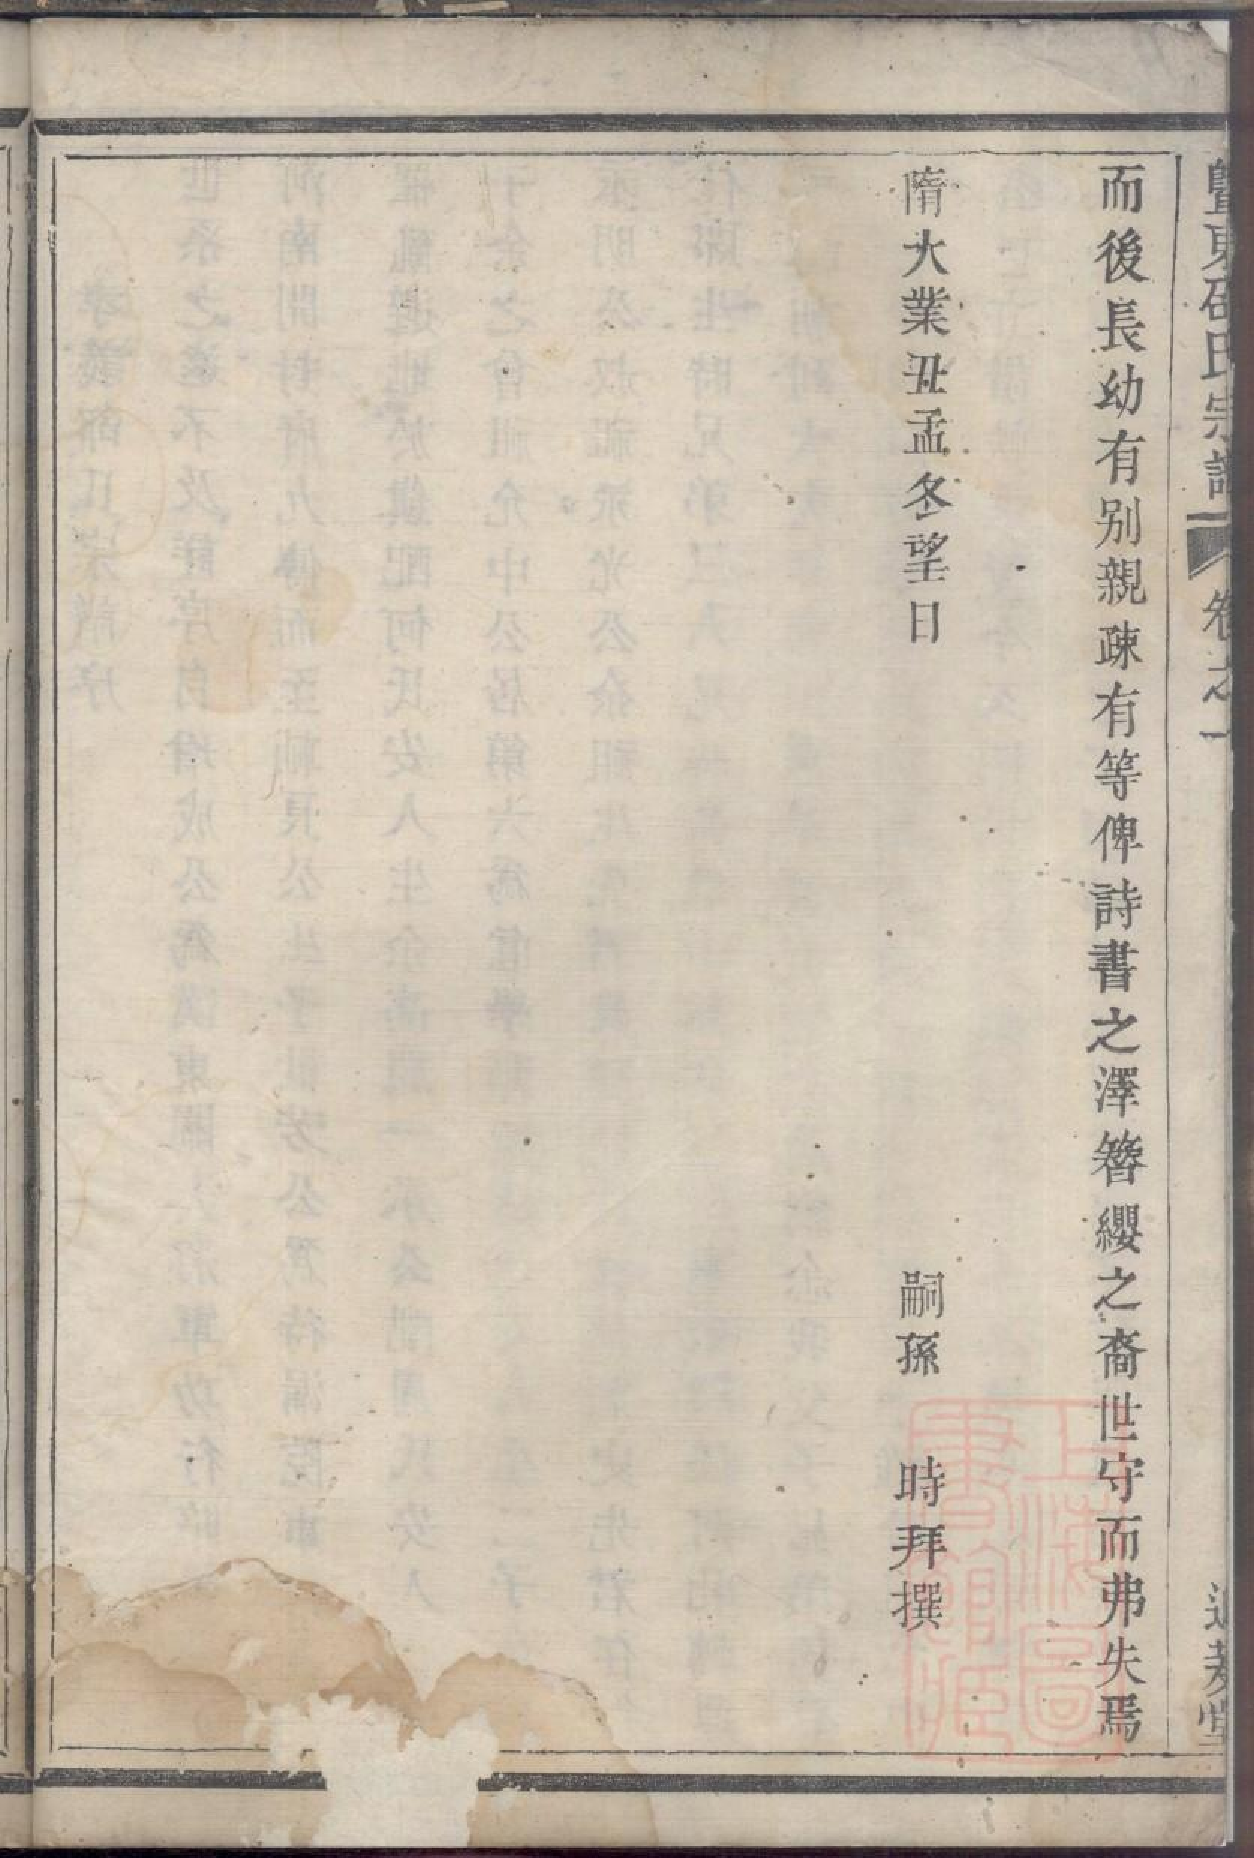 暨東邵氏宗譜 卷之一
而後長幼有別親疎有等俾詩書之澤簪纓之裔世守而弗失焉
隋大業丑孟冬望日 嗣孫 時拜撰
上海圖書館藏